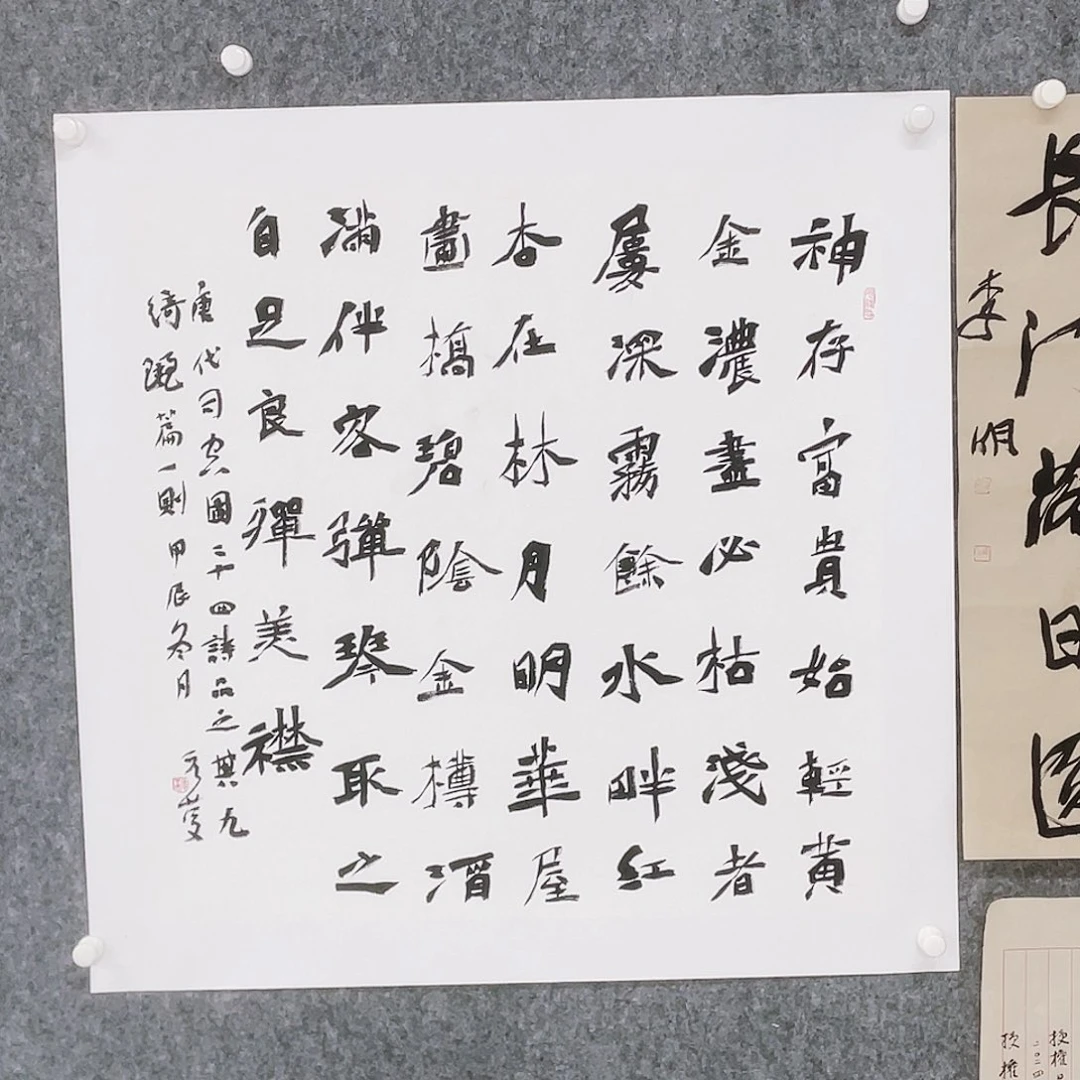 神存富貴始輕黃
金濃盡必枯淺者
屢深霧餘水畔紅
杏在林月明華屋
畫橋碧陰金樽酒
滿伴客彈琴取之
自足良殫美襟
唐代司空圖二十四詩品之其九
綺麗篇一則甲辰冬月
長河落日圓
李明
授權
二〇二四
授權